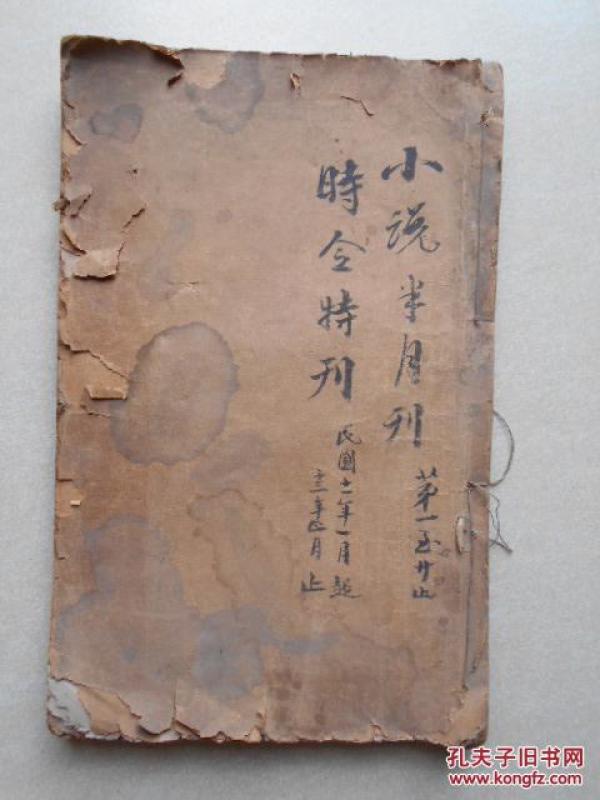 小説半月刊
第一至廿止
時令特刊
民國十一年一月起
年正月止
孔夫子旧书网
www.kongfz.com